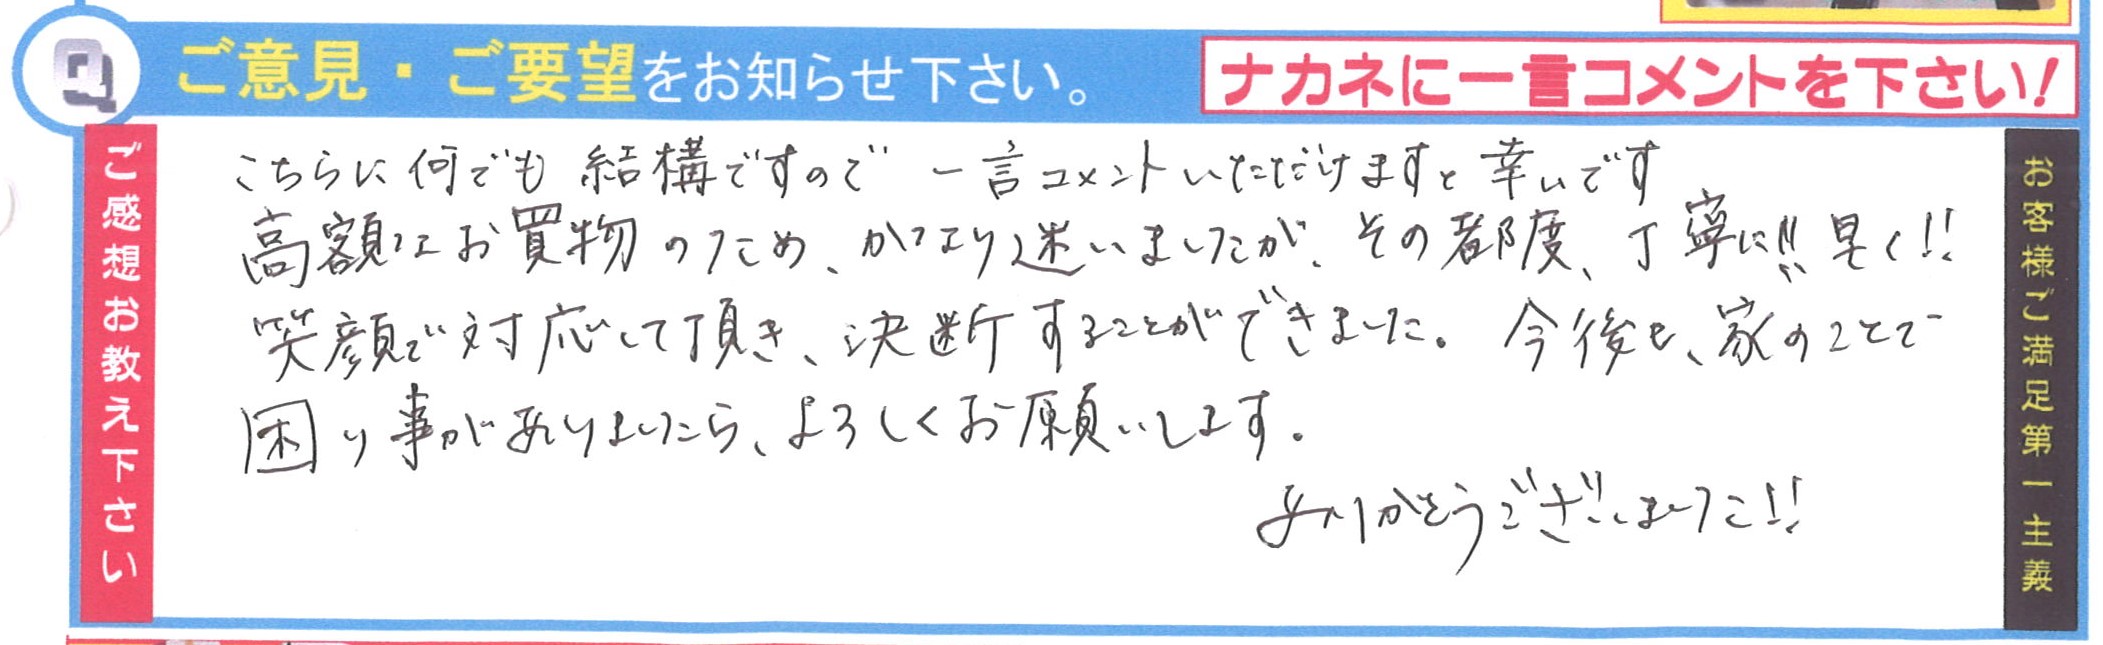 Q ご意見・ご要望をお知らせ下さい。
ナカネに一言コメントを下さい!
ご感想お教え下さい
こちらに何でも結構ですので 一言コメントいただけますと幸いです
高額なお買物のため、かなり迷いましたが、その都度、丁寧に!! 早く!!
笑顔で対応して頂き、決断することができました。今後も、家のことで
困り事がありましたら、よろしくお願いします。
ありがとうございました!!
お客様ご満足第一主義